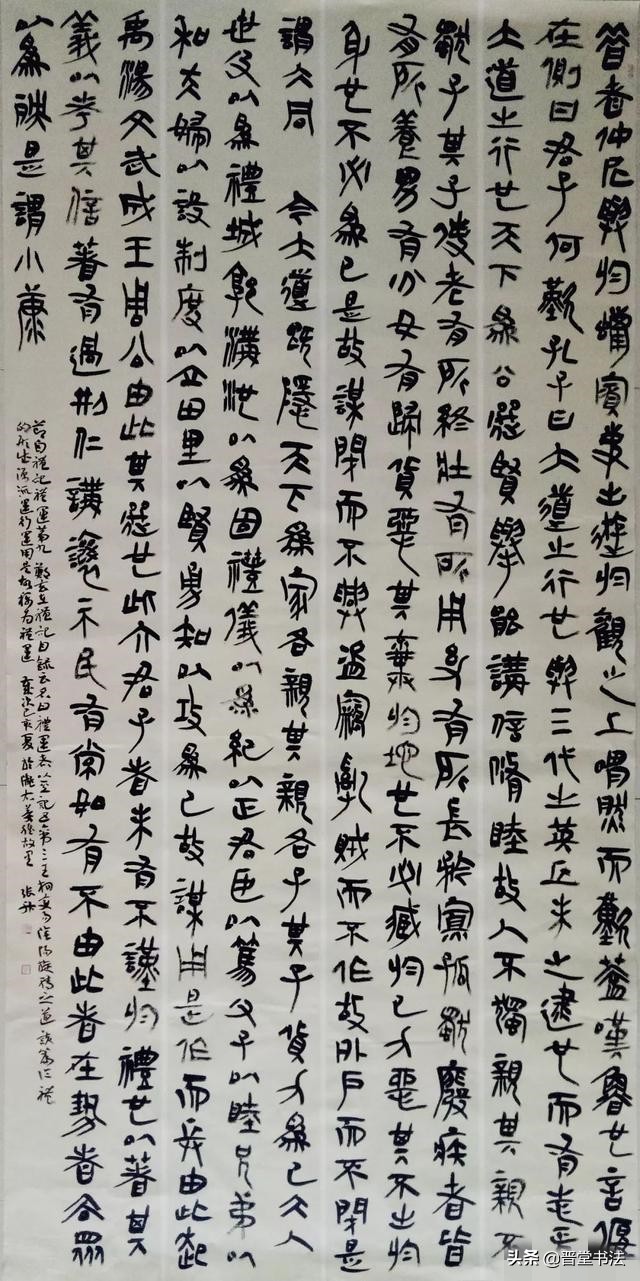 昔者仲尼與於蠟賓事出遊於觀之上喟然而歎蓋嘆魯也言偃
在側曰君子何歎孔子曰大道之行也與三代之英丘未之逮也而有志
大道之行也天下為公選賢舉能講信脩睦故人不獨親其親不
獨子其子使老有所終壯有所用幼有所長矜寡孤獨廢疾者皆
有所養男有分女有歸貨惡其棄於地也不必藏於己力惡其不出於
身也不必為己是故謀閉而不興盜竊亂賊而不作故外戶而不閉是
謂大同 今大道既隱天下為家各親其親各子其子貨力為己大人
世及以為禮城郭溝池以為固禮儀以為紀以正君臣以篤父子以睦兄弟以
和夫婦以設制度以立田里以賢勇知以攻為己故謀用是作而兵由此起
禹湯文武成王周公由此其選也此六君子者未有不謹於禮也以著其
義以考其信著有過刑仁講讓示民有常如有不由此者在勢者去眾
以為殃是謂小康
節自禮記禮運第九 鄭玄 禮記目錄云名曰禮運者以其記五帝三王相變易陰陽旋轉之道 該篇從禮
的形成源流運行運用 故稱為禮運 歲次己亥夏
头条 @晋堂书法